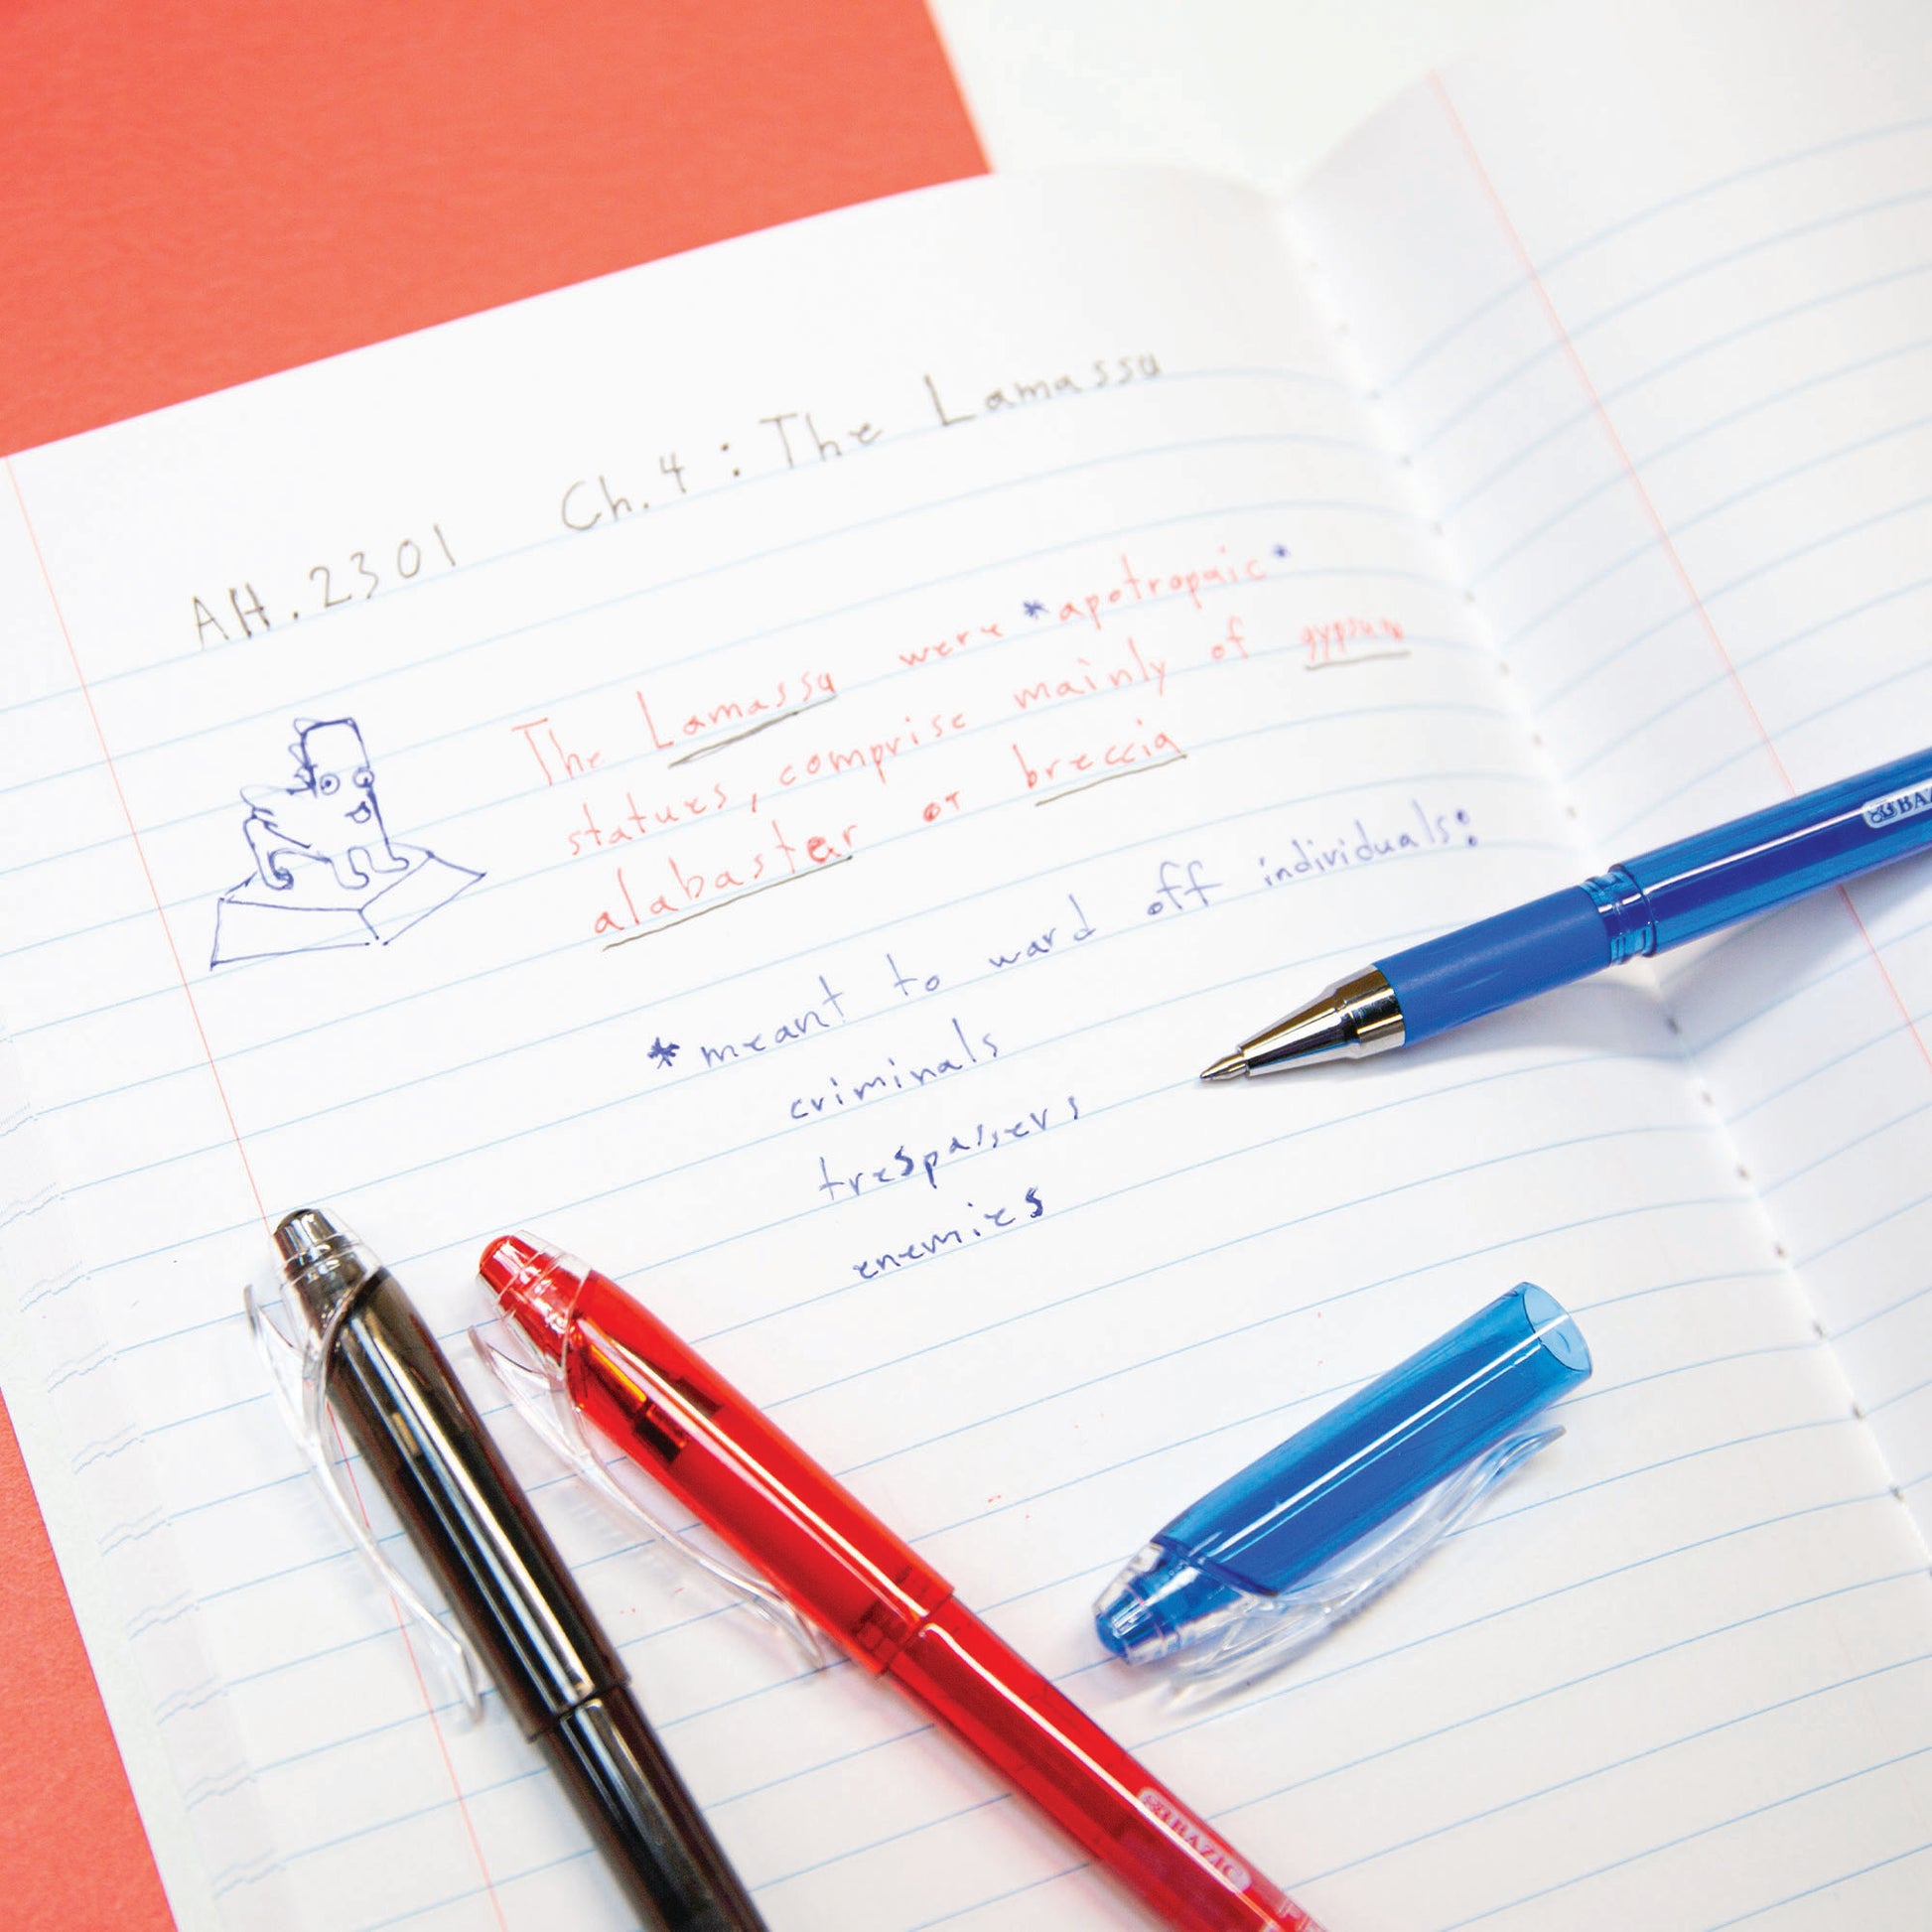 AH.2301 Ch.4 : The Lamassu
The Lamassu were *apotropaic*
statues, comprise mainly of gypsum
alabaster or breccia
*meant to ward off individuals:
criminals
trespassers
enemies
BAZIC